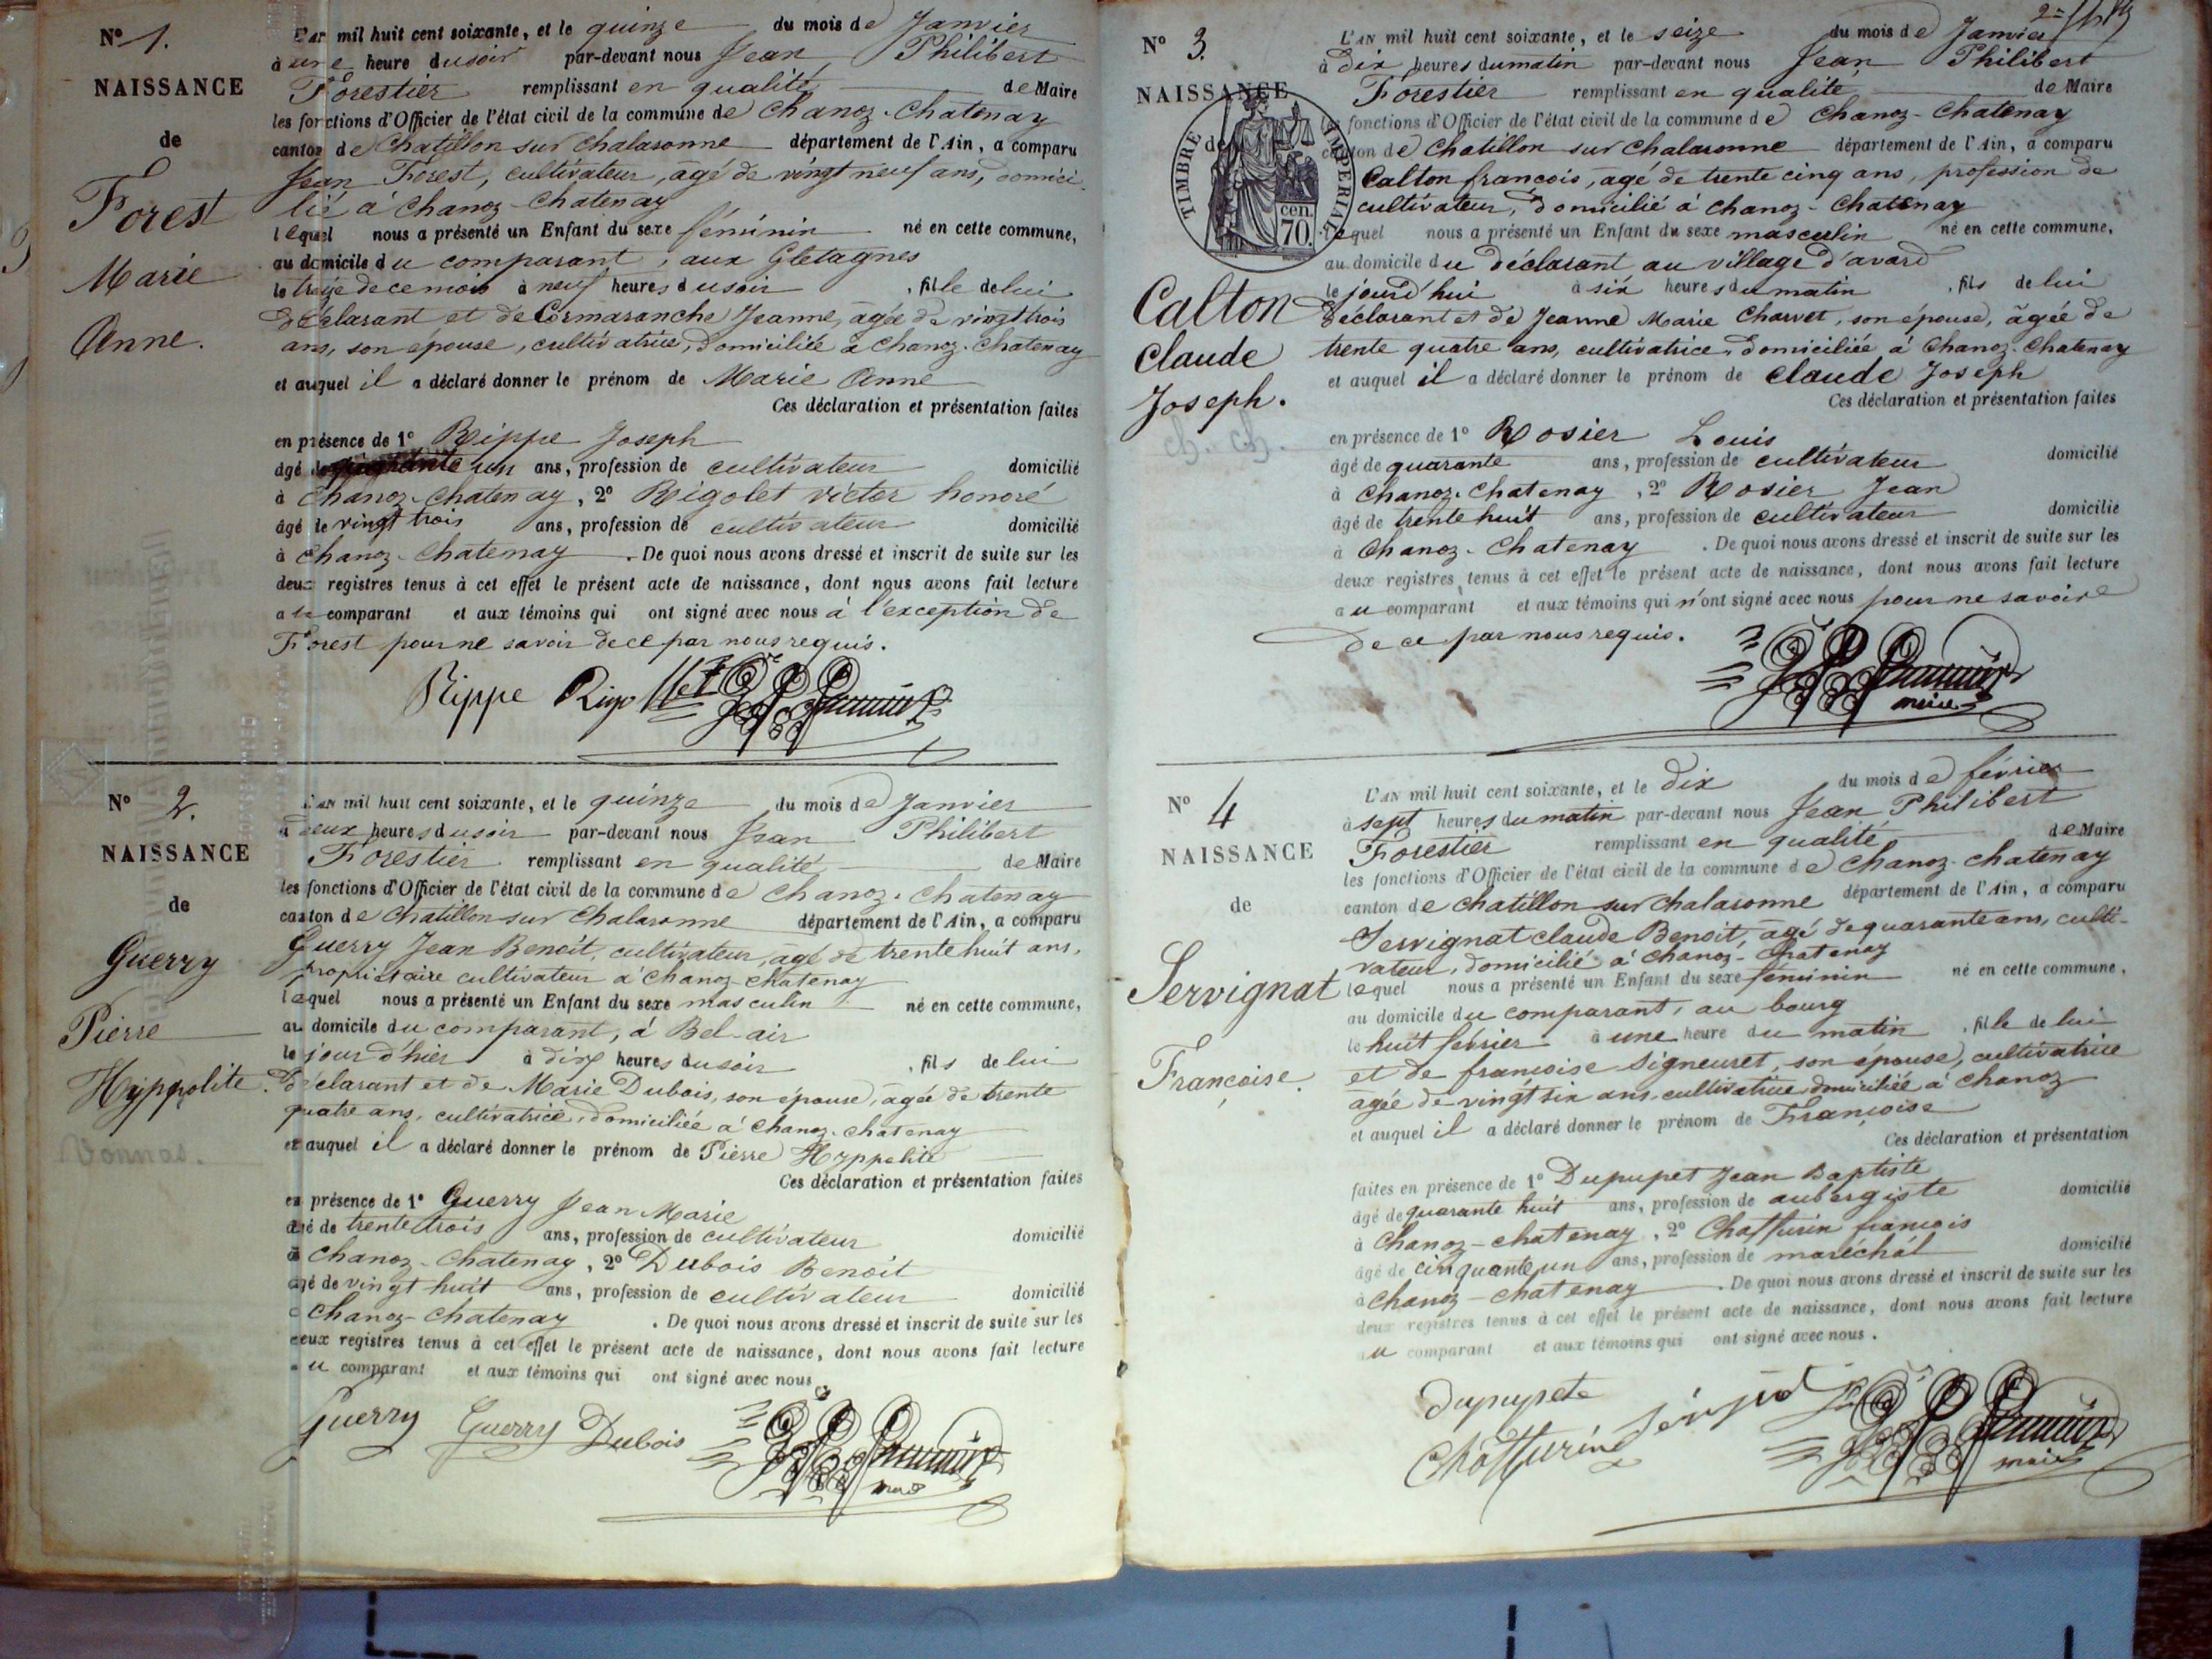 N° 1.
NAISSANCE
de
Forest
Marie
Anne.
L'AN mil huit cent soixante, et le quinze du mois de Janvier
à une heure du soir par-devant nous Jean Philibert
Forestier remplissant en qualité de Maire
les fonctions d'Officier de l'état civil de la commune de Chanoz-Chatenay
canton de Chatillon sur Chalaronne département de l'Ain, a comparu
Jean Forest, cultivateur, agé de vingt neuf ans, domici-
lié à Chanoz-Chatenay
lequel nous a présenté un Enfant du sexe féminin né en cette commune,
au domicile du comparant, aux Gletagnes
le treize de ce mois à neuf heures du soir, fille de lui
déclarant et de Cormaranche Jeanne, agée de vingt trois
ans, son épouse, cultivatrice, domiciliée à Chanoz-Chatenay
et auquel il a déclaré donner le prénom de Marie Anne
Ces déclaration et présentation faites
en présence de 1° Rippe Joseph
âgé de un ans, profession de cultivateur domicilié
à Chanoz-Chatenay, 2° Rigolet victor honoré
âgé de vingt trois ans, profession de cultivateur domicilié
à Chanoz-Chatenay. De quoi nous avons dressé et inscrit de suite sur les
deux registres tenus à cet effet le présent acte de naissance, dont nous avons fait lecture
au comparant et aux témoins qui ont signé avec nous à l'exception de
Forest pour ne savoir de ce par nous requis.
Rippe Rigollet
N° 2.
NAISSANCE
de
Guerry
Pierre
Hyppolite.
Vonnas.
L'AN mil huit cent soixante, et le quinze du mois de Janvier
à deux heures du soir par-devant nous Jean Philibert
Forestier remplissant en qualité de Maire
les fonctions d'Officier de l'état civil de la commune de Chanoz-Chatenay
canton de Chatillon sur Chalaronne département de l'Ain, a comparu
Guerry Jean Benoit, cultivateur, agé de trente huit ans,
propriétaire cultivateur à Chanoz-Chatenay
lequel nous a présenté un Enfant du sexe masculin né en cette commune,
au domicile du comparant, à Bel-air
le jour d'hier à dix heures du soir, fils de lui
déclarant et de Marie Dubois, son épouse, agée de trente
quatre ans, cultivatrice, domiciliée à Chanoz-Chatenay
et auquel il a déclaré donner le prénom de Pierre Hyppolite
Ces déclaration et présentation faites
en présence de 1° Guerry Jean Marie
âgé de trente trois ans, profession de cultivateur domicilié
à Chanoz-Chatenay, 2° Dubois Benoit
âgé de vingt huit ans, profession de cultivateur domicilié
à Chanoz-Chatenay. De quoi nous avons dressé et inscrit de suite sur les
deux registres tenus à cet effet le présent acte de naissance, dont nous avons fait lecture
au comparant et aux témoins qui ont signé avec nous
Guerry Guerry Dubois
maire
N° 3.
NAISSANCE
de
TIMBRE IMPERIAL
70. cen.
Calton
Claude
Joseph.
ch. ch.
L'AN mil huit cent soixante, et le seize du mois de Janvier
à dix heures du matin par-devant nous Jean Philibert
Forestier remplissant en qualité de Maire
les fonctions d'Officier de l'état civil de la commune de Chanoz-Chatenay
canton de Chatillon sur Chalaronne département de l'Ain, a comparu
Calton françois, agé de trente cinq ans, profession de
cultivateur, domicilié à Chanoz-Chatenay
lequel nous a présenté un Enfant du sexe masculin né en cette commune,
au domicile du déclarant au village d'avard
le jourd'hui à six heures du matin, fils de lui
déclarant et de Jeanne Marie Charvet, son épouse, agée de
trente quatre ans, cultivatrice, domiciliée à Chanoz-Chatenay
et auquel il a déclaré donner le prénom de Claude Joseph
Ces déclaration et présentation faites
en présence de 1° Rosier Louis
âgé de quarante ans, profession de cultivateur domicilié
à Chanoz-Chatenay, 2° Rosier Jean
âgé de trente huit ans, profession de cultivateur domicilié
à Chanoz-Chatenay. De quoi nous avons dressé et inscrit de suite sur les
deux registres tenus à cet effet le présent acte de naissance, dont nous avons fait lecture
au comparant et aux témoins qui n'ont signé avec nous pour ne savoir
de ce par nous requis.
maire
N° 4
NAISSANCE
de
Servignat
Françoise.
L'AN mil huit cent soixante, et le dix du mois de février
à sept heures du matin par-devant nous Jean Philibert
Forestier remplissant en qualité de Maire
les fonctions d'Officier de l'état civil de la commune de Chanoz-Chatenay
canton de Chatillon sur Chalaronne département de l'Ain, a comparu
Servignat Claude Benoit, agé de quarante ans, culti-
vateur, domicilié à Chanoz-Chatenay
lequel nous a présenté un Enfant du sexe féminin né en cette commune,
au domicile du comparant, au bourg
le huit février à une heure du matin, fille de lui
et de françoise Signeuret, son épouse, cultivatrice
agée de vingt six ans, cultivatrice domiciliée à Chanoz
et auquel il a déclaré donner le prénom de Françoise
Ces déclaration et présentation
faites en présence de 1° Dupupet Jean Baptiste
âgé de quarante huit ans, profession de aubergiste domicilié
à Chanoz-Chatenay, 2° Chaffurin françois
âgé de cinquante un ans, profession de maréchal domicilié
à Chanoz-Chatenay. De quoi nous avons dressé et inscrit de suite sur les
deux registres tenus à cet effet le présent acte de naissance, dont nous avons fait lecture
au comparant et aux témoins qui ont signé avec nous.
dupupete
maire